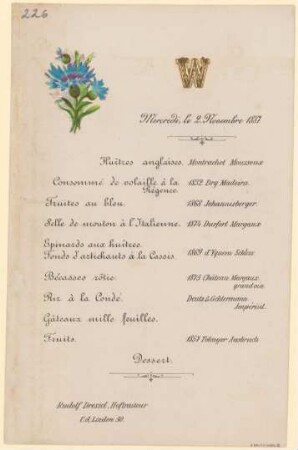 226
W
Mercredi, le 2 Novembre 1887
Huîtres anglaises. Montrachet Mousseux
Consommé de volaille à la Régence. 1832 Madeira.
Truites au bleu. 1868 Johannisberger.
Selle de mouton à l'Italienne. 1874 Margaux
Epinards aux huîtres.
Fonds d'artichauts à la Cassis. 1869 d'Yquem
Bécasses rôtie. 1875 Château Margaux
grand vin
Riz à la Condé. Deutz & Geldermann
Impérial.
Gâteaux mille feuilles.
Fruits. 1834 Ausbruch
Dessert.
Rudolf Dressel, Hoftraiteur
U. d. Linden 50.